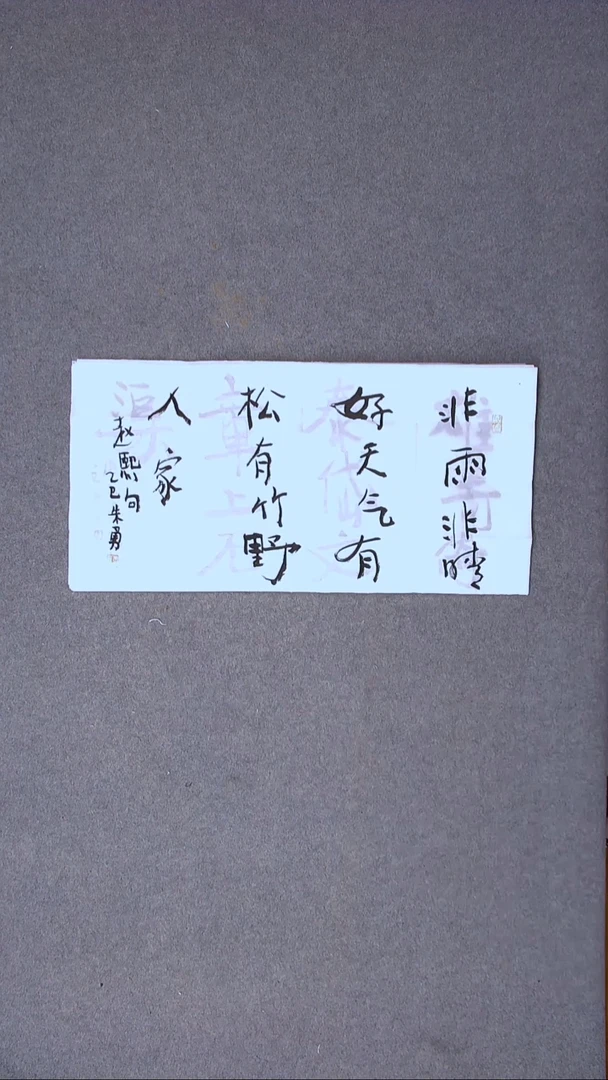 非雨非晴
好天气有
松有竹野
人家
赵熙句
乙巳朱勇